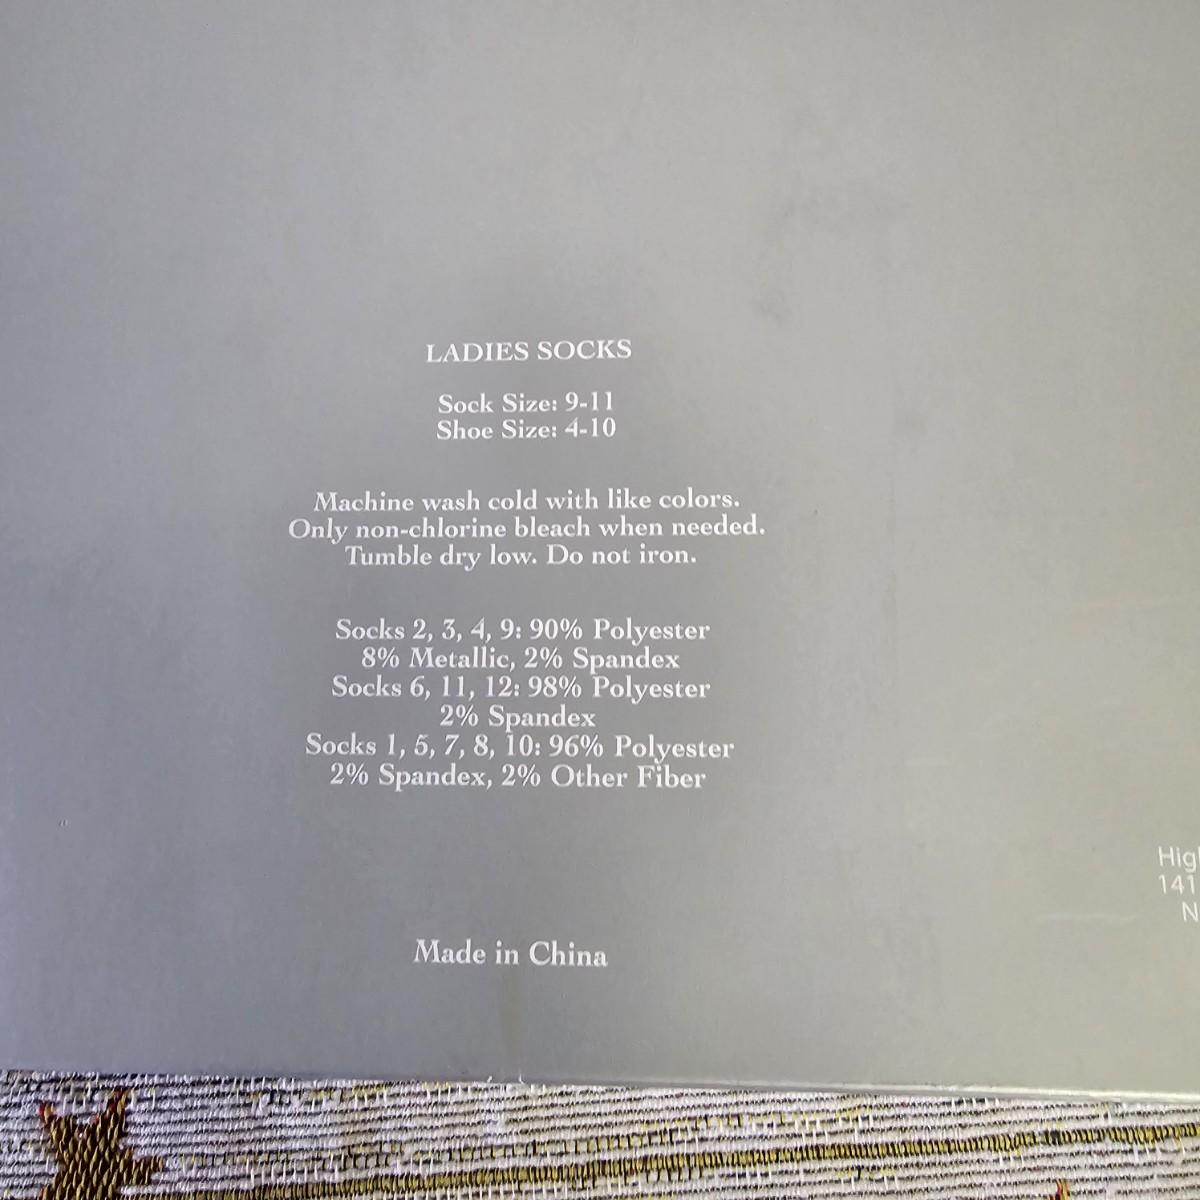 LADIES SOCKS
Sock Size: 9-11
Shoe Size: 4-10
Machine wash cold with like colors.
Only non-chlorine bleach when needed.
Tumble dry low. Do not iron.
Socks 2, 3, 4, 9: 90% Polyester
8% Metallic, 2% Spandex
Socks 6, 11, 12: 98% Polyester
2% Spandex
Socks 1, 5, 7, 8, 10: 96% Polyester
2% Spandex, 2% Other Fiber
Made in China
141